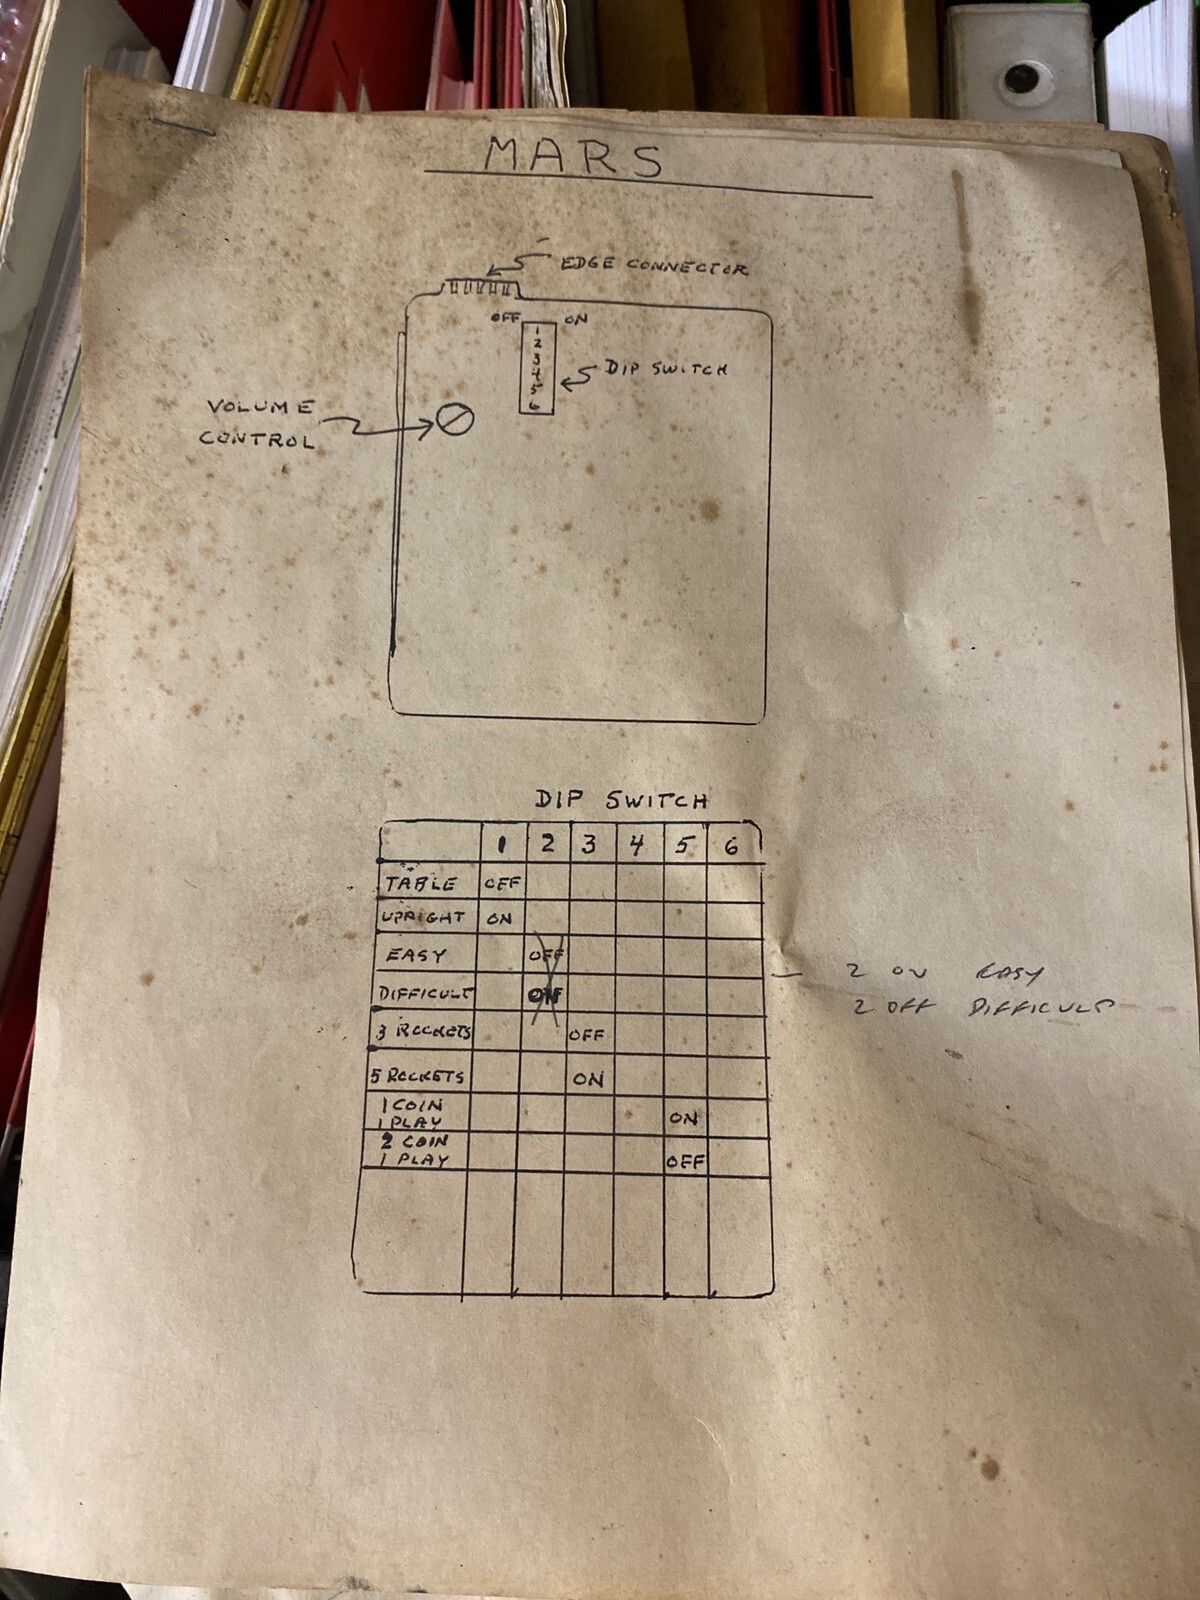 MARS
EDGE CONNECTOR
OFF ON
1
2
3
4
5
6
DIP SWITCH
VOLUME
CONTROL
DIP SWITCH
1 2 3 4 5 6
TABLE OFF
UPRIGHT ON
EASY OFF
DIFFICULT ON
2 ON EASY
2 OFF DIFFICULT
3 ROCKETS OFF
5 ROCKETS ON
1 COIN
1 PLAY ON
2 COIN
1 PLAY OFF